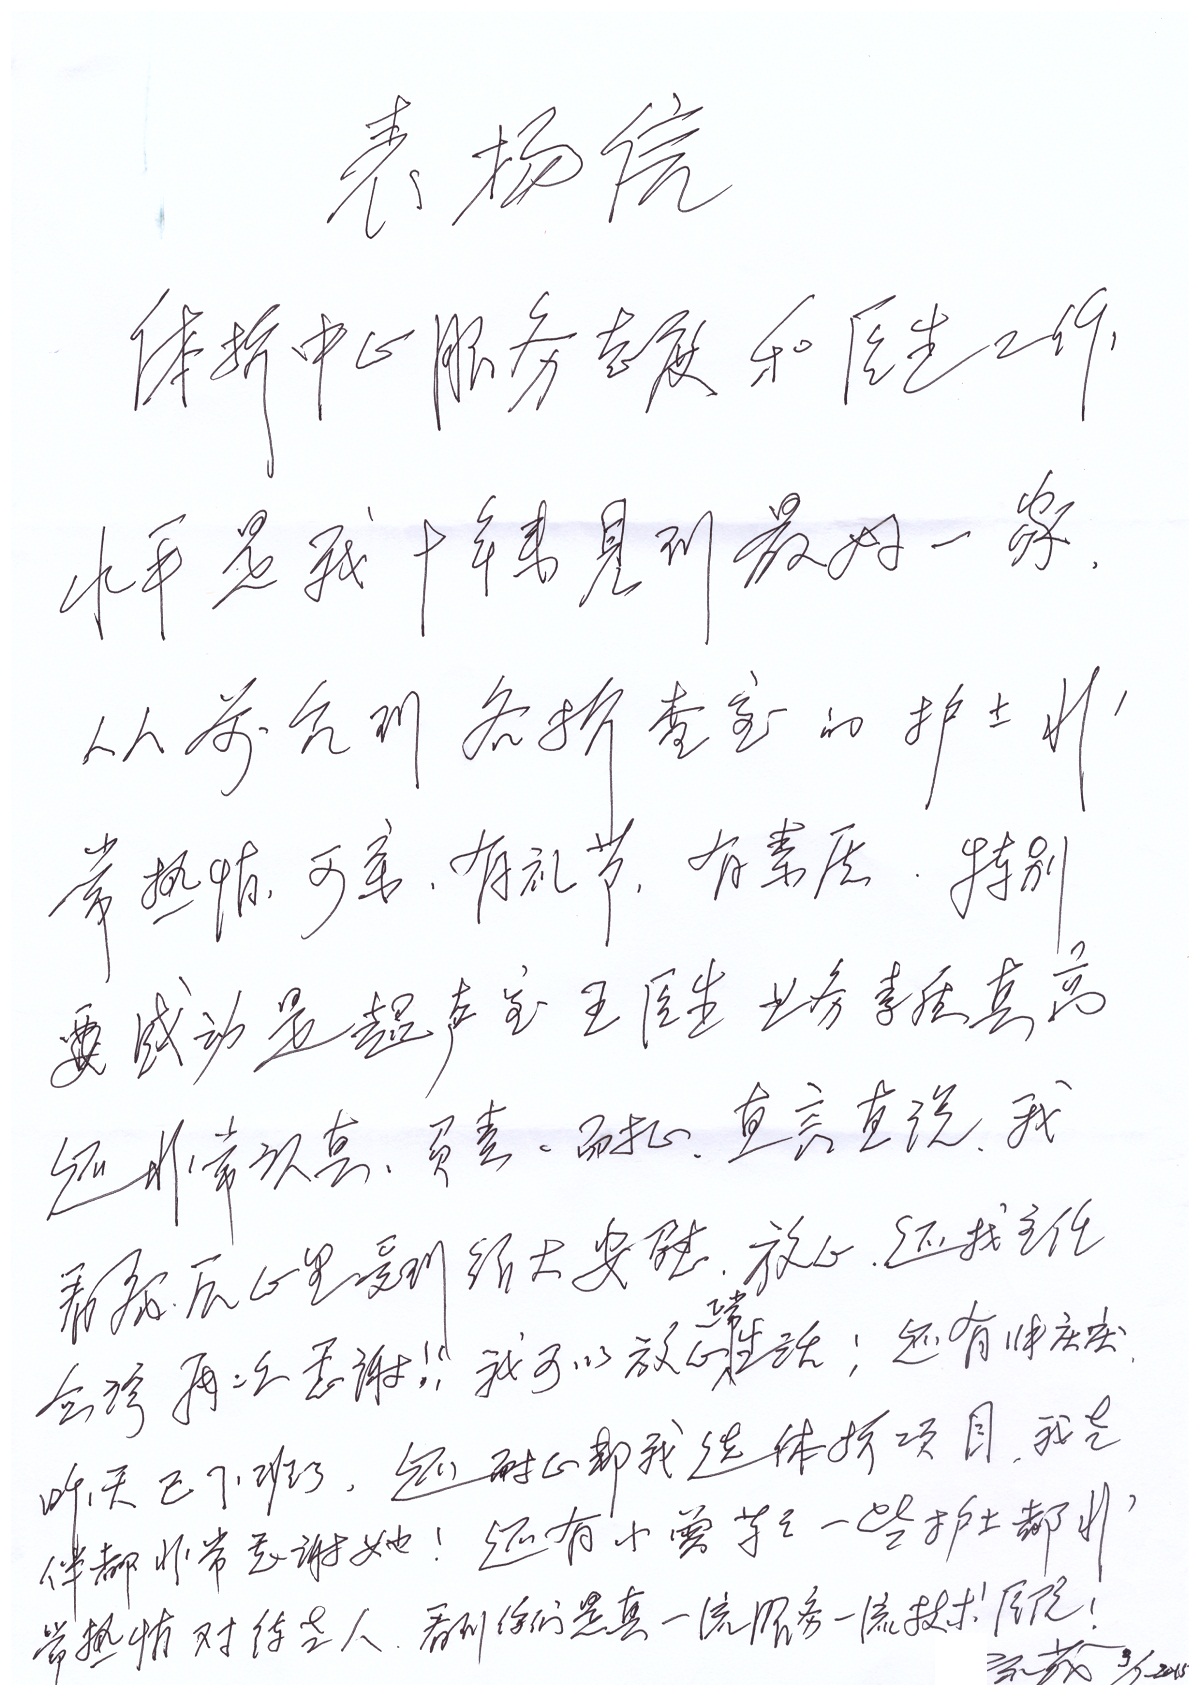 表扬信
体检中心服务态度和医生工作
水平是我十年来见到最好一家.
从前台到各检查室的护士非
常热情、可亲、有礼节、有素质. 特别
要感动是超声室王医生业务素质真高
还非常认真、负责、耐心、直言直说、我
看病后心里受到很大安慰、放心. 还找主任
会诊再次感谢!! 我可以放心正常生活; 还有帅庆庆、
昨天已下班了, 还耐心帮我选体检项目、我老
伴都非常感谢她! 还有小曾等一些护士都非
常热情对待老人. 看到你们是真一流服务一流技术医院!
2015